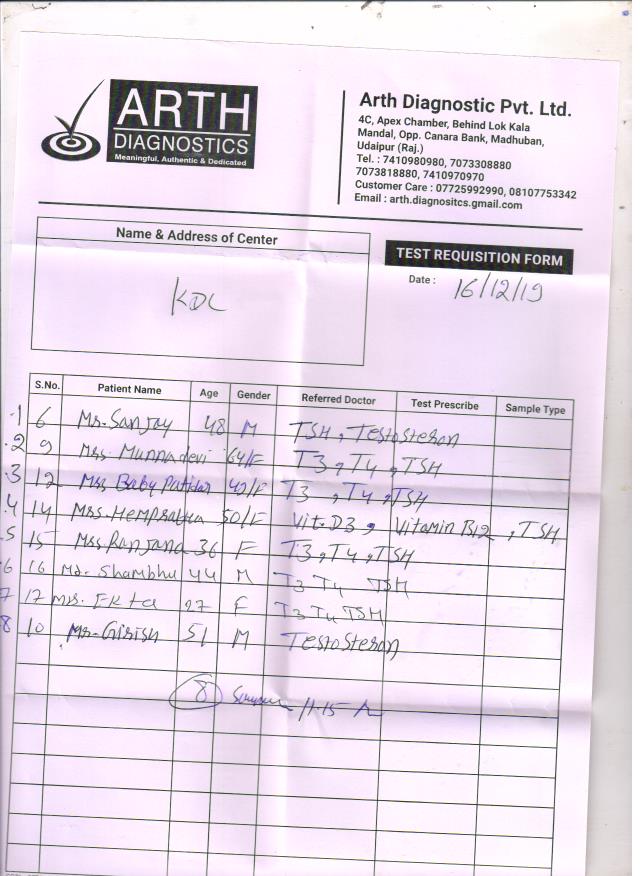 ARTH
DIAGNOSTICS
Meaningful, Authentic & Dedicated
Arth Diagnostic Pvt. Ltd.
4C, Apex Chamber, Behind Lok Kala
Mandal, Opp. Canara Bank, Madhuban,
Udaipur (Raj.)
Tel. : 7410980980, 7073308880
7073818880, 7410970970
Customer Care : 07725992990, 08107753342
Email : arth.diagnositcs.gmail.com
Name & Address of Center
KDC
TEST REQUISITION FORM
Date : 16/12/19
S.No. Patient Name Age Gender Referred Doctor Test Prescribe Sample Type
.1 6 Mr. Sanjay 48 M TSH, Testosteron
.2 9 Mrs. Munnadevi 64/F T3, T4, TSH
.3 12 Mrs Baby Patidar 47/F T3, T4, TSH
.4 14 Mrs. Hemprabha 50/F Vit. D3, Vitamin B12, TSH
.5 15 Mrs. Ranjana 36 F T3, T4, TSH
6 16 Mr. Shambhu 44 M T3 T4 TSH
7 17 Mrs. Ekta 27 F T3 T4 TSH
8 10 Mr. Girish 51 M Testosteron
8